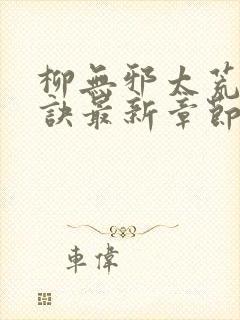 柳無邪太荒
訣最新章節
車偉